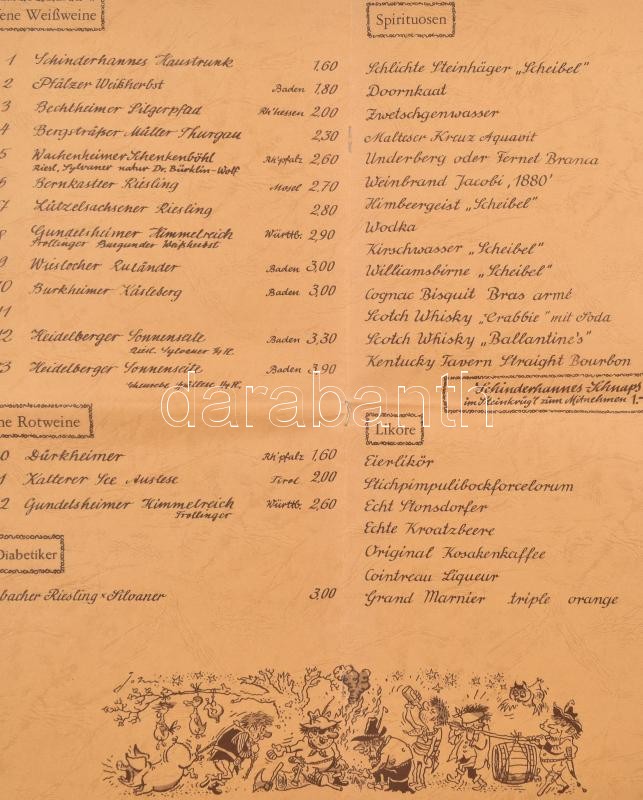 ene Weißweine
1 Schinderhannes Haustrunk 1,60
2 Pfälzer Weißherbst Baden 1,80
3 Bechtheimer Pilgerpfad Rh'hessen 2,00
4 Bergsträßer Müller Thurgau 2,30
5 Wachenheimer Schenkenböhl Rh'pfalz 2,60
Riesl. Sylvaner natur Dr. Bürklin-Wolf
6 Bernkastler Riesling Mosel 2,70
7 Lützelsachsener Riesling 2,80
8 Gundelsheimer Himmelreich Württb. 2,90
Trollinger Burgunder Weißherbst
9 Wieslocher Ruländer Baden 3,00
10 Burkheimer Käsleberg Baden 3,00
11
12 Heidelberger Sonnenseite Baden 3,30
Riesl. Sylvaner
13 Heidelberger Sonnenseite Baden 3,90
ne Rotweine
0 Dürkheimer Rh'pfalz 1,60
1 Kalterer See Auslese Tirol 2,00
2 Gundelsheimer Himmelreich Württb. 2,60
Trollinger
Diabetiker
bacher Riesling × Silvaner 3,00
Spirituosen
Schlichte Steinhäger „Scheibel"
Doornkaat
Zwetschgenwasser
Malteser Kreuz Aquavit
Underberg oder Fernet Branca
Weinbrand Jacobi '1880'
Himbeergeist „Scheibel"
Wodka
Kirschwasser „Scheibel"
Williamsbirne „Scheibel"
Cognac Bisquit Bras armé
Scotch Whisky „Crabbie" mit Soda
Scotch Whisky „Ballantine's"
Kentucky Tavern Straight Bourbon
Schinderhannes Schnaps
im Steinkrügl zum Mitnehmen 1.-
Liköre
Eierlikör
Stichpimpulibockforcelorum
Echt Stonsdorfer
Echte Kroatzbeere
Original Kosakenkaffee
Cointreau Liqueur
Grand Marnier triple orange
John
darabanth